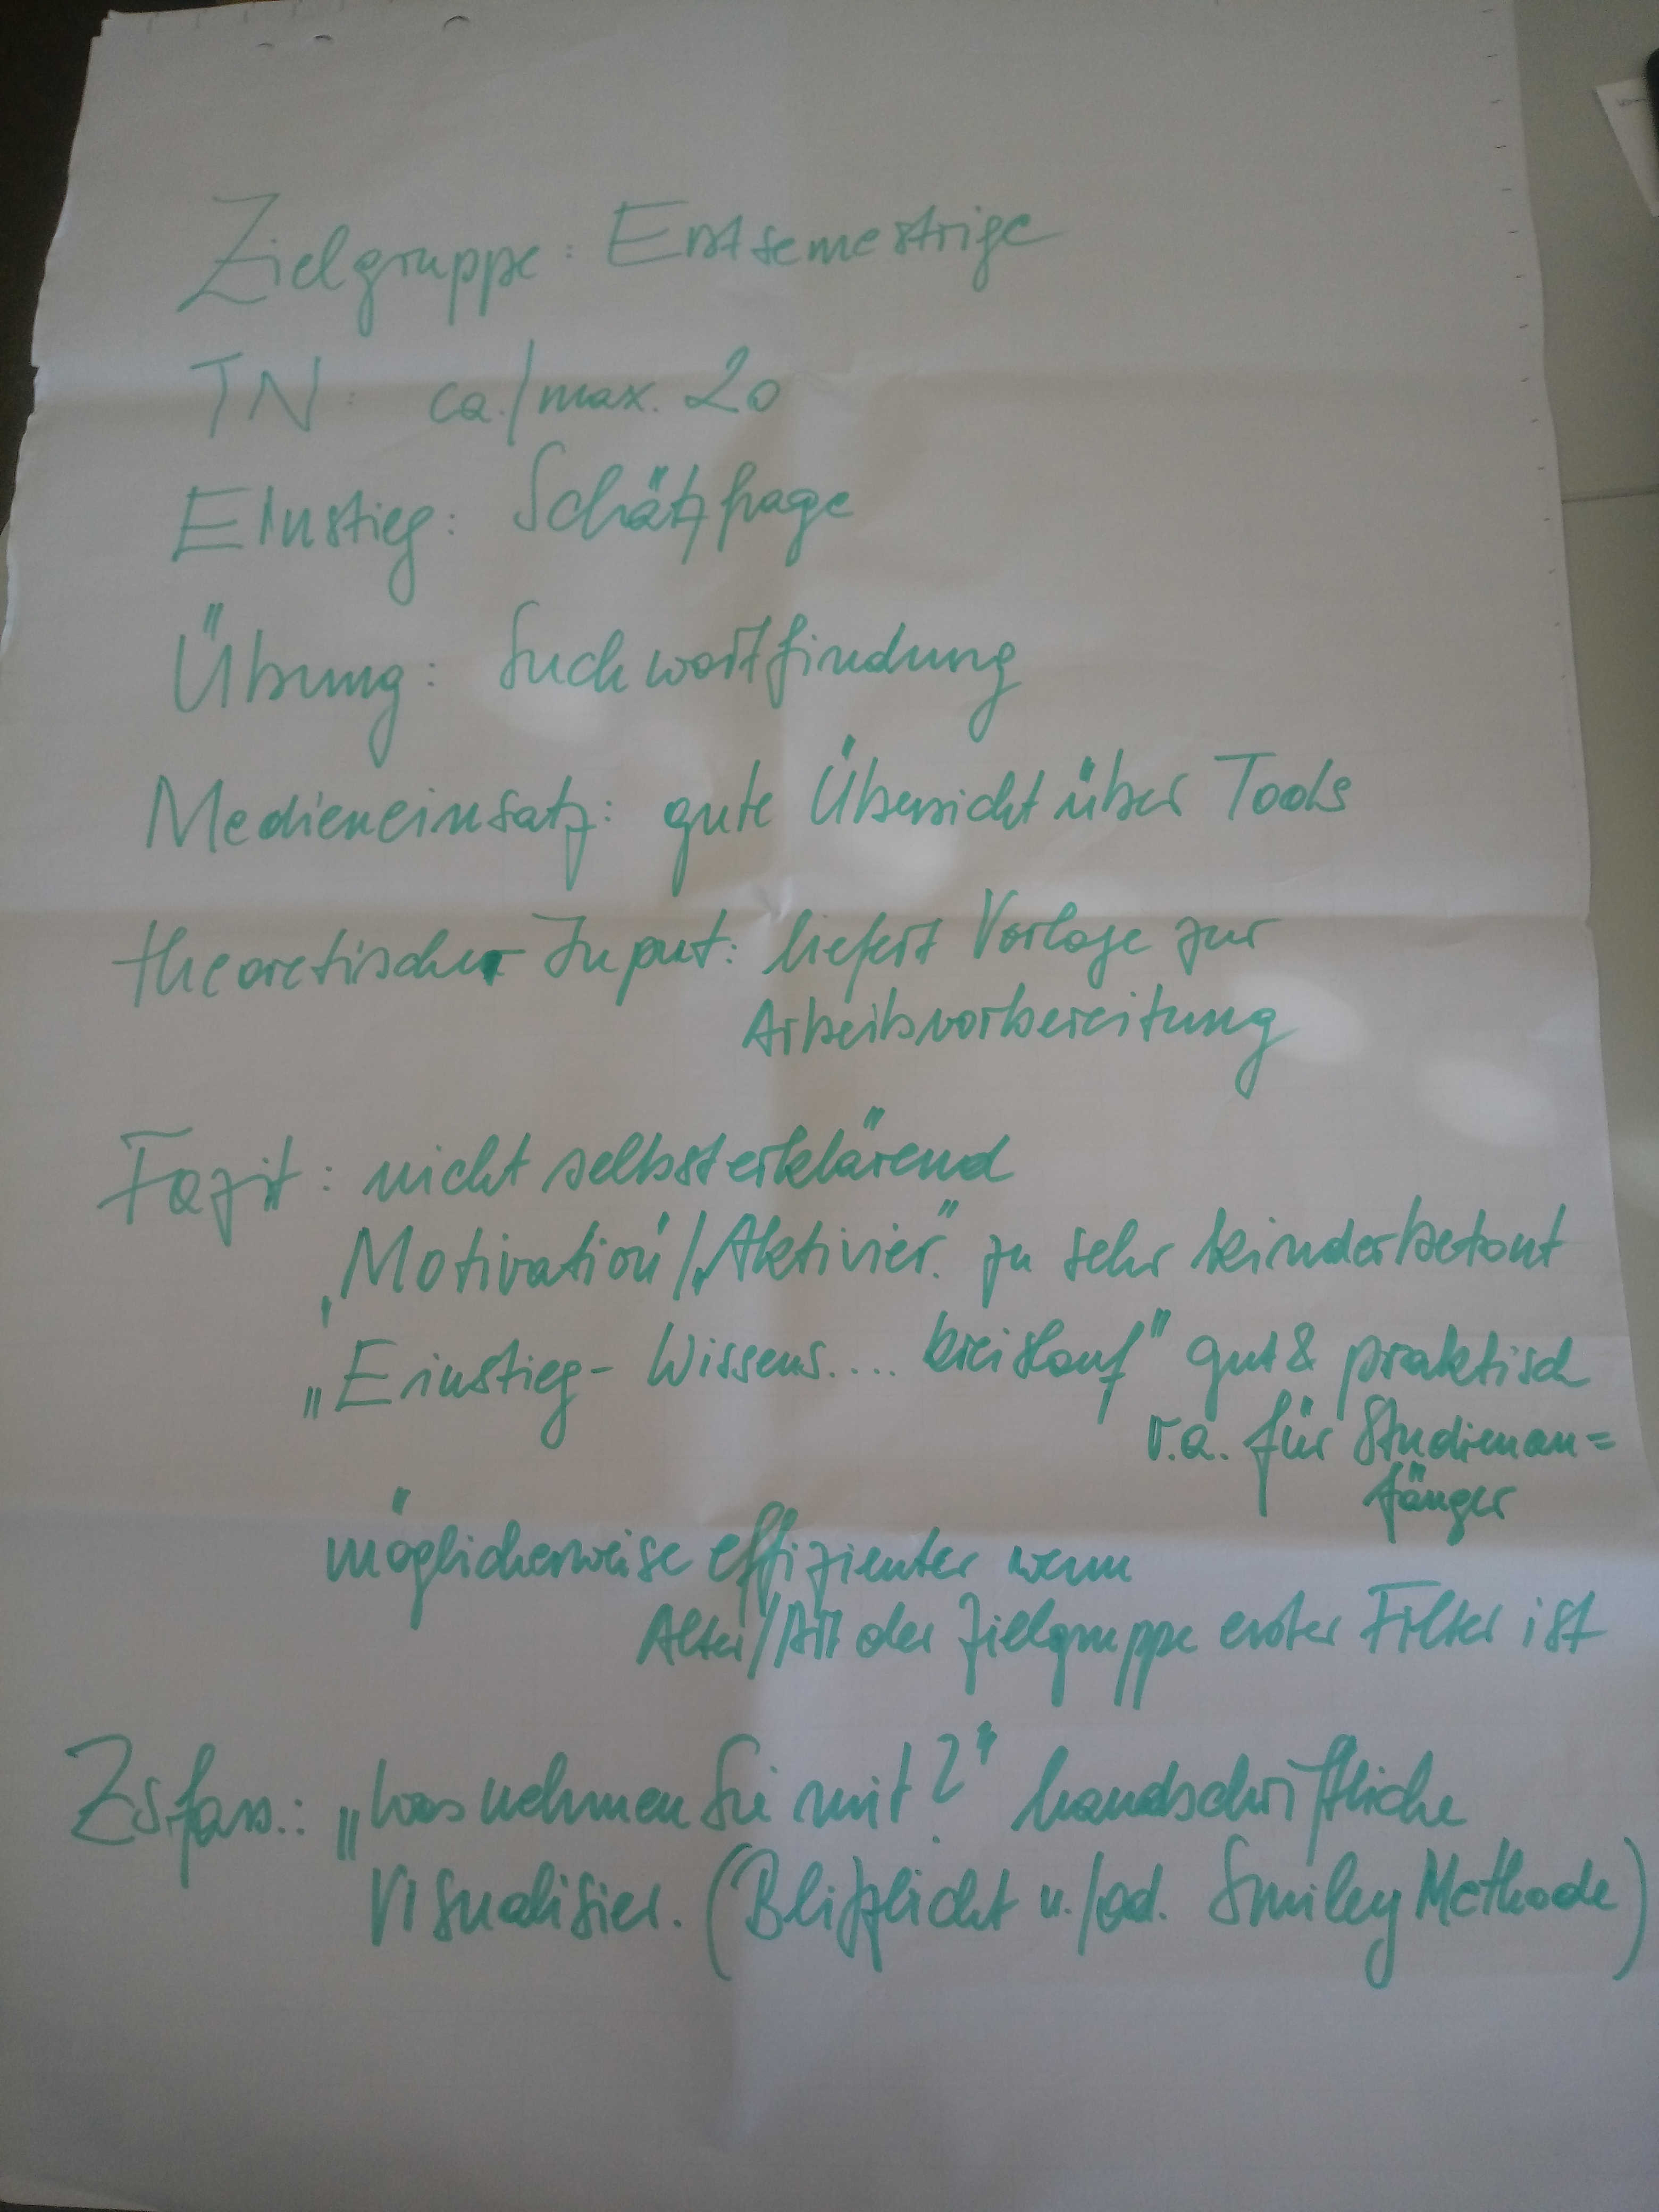 Zielgruppe: Erstsemestrige
TN: ca./max. 20
Einstieg: Schätzfrage
Übung: Suchwortfindung
Medieneinsatz: gute Übersicht über Tools
theoretischer Input: liefert Vorlage zur
Arbeitsvorbereitung
Fazit: nicht selbsterklärend
„Motivation"/„Aktivier." zu sehr kinderbetont
„Einstieg - Wissens.... kreislauf" gut & praktisch
v.a. für Studienan=
fänger
möglicherweise effizienter wenn
Alter/Art der Zielgruppe erster Filter ist
Zsfass.: „Was nehmen Sie mit?" handschriftliche
Visualisier. (Blitzlicht u./od. Smiley Methode)